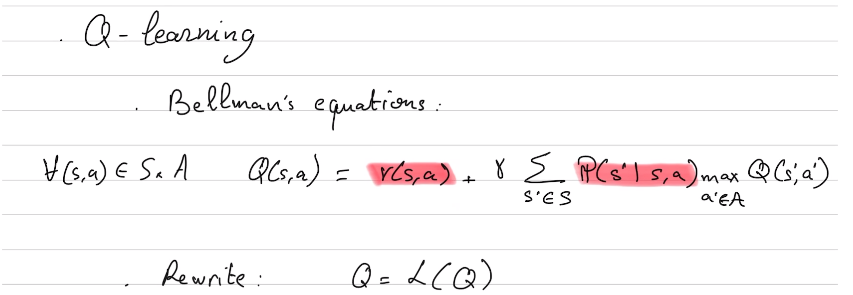 . Q - learning
. Bellman's equations :
∀(s,a) ∈ S x A Q(s,a) = r(s,a) + γ ∑ s'∈S P(s'| s,a) max a'∈A Q(s',a')
. Rewrite : Q = L(Q)